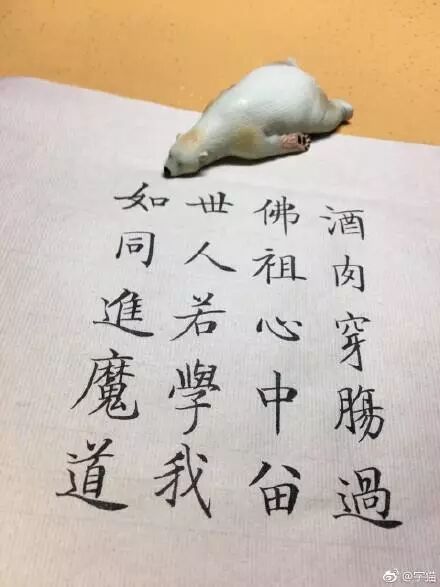 酒肉穿腸過
佛祖心中留
世人若學我
如同進魔道
@字猫